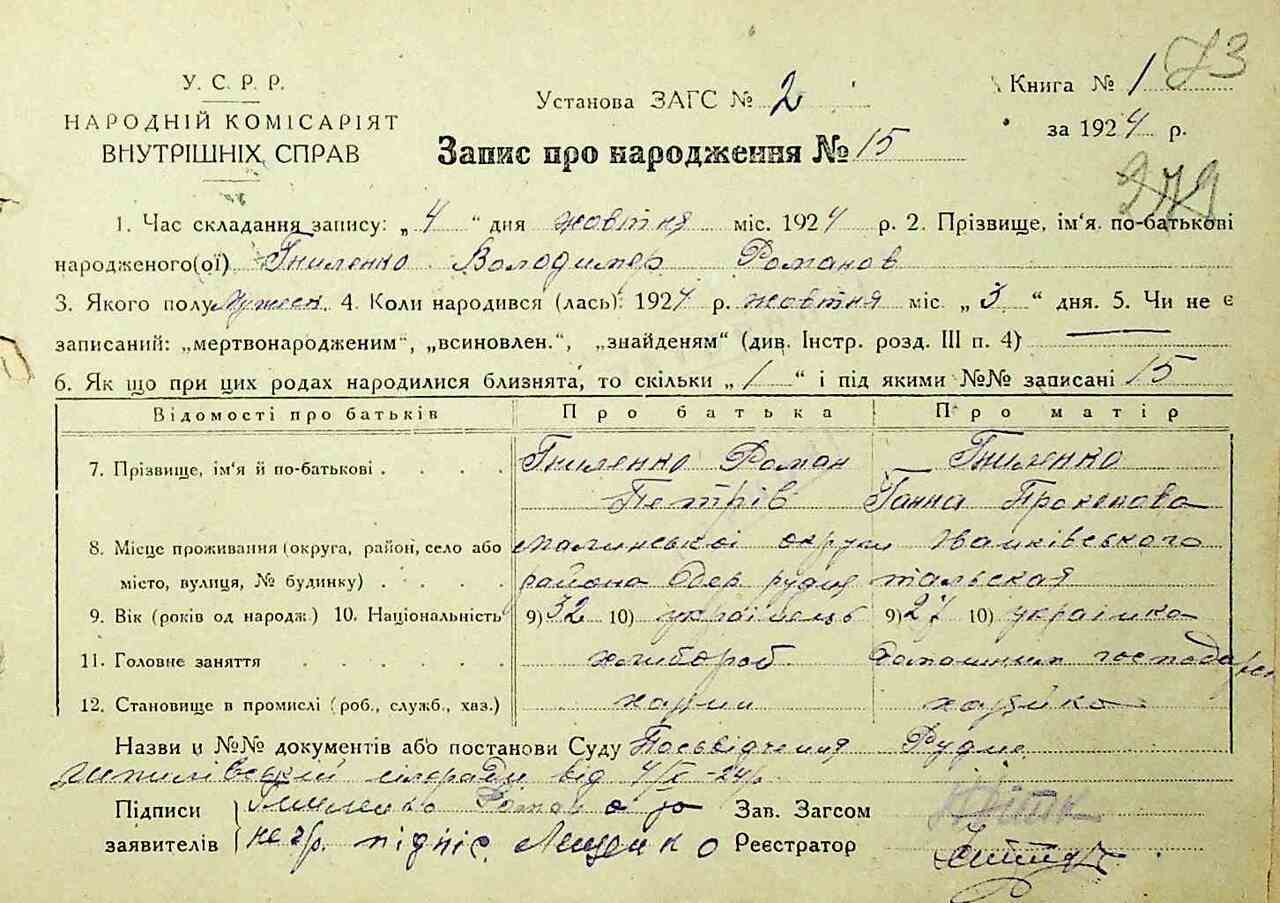 У. С. Р. Р.
НАРОДНІЙ КОМІСАРІЯТ
ВНУТРІШНІХ СПРАВ
Установа ЗАГС № 2
Книга № 1 73
за 1924 р.
Запис про народження № 15
279
1. Час складання запису: „4“ дня жовтня міс. 1924 р. 2. Прізвище, ім'я по-батькові
народженого(ої) Гниленко Володимер Романов
3. Якого полу Мужеск. 4. Коли народився (лась): 1924 р. жовтня міс. „3“ дня. 5. Чи не є
записаний: „мертвонародженим“, „всиновлен.“, „знайденям“ (див. Інстр. розд. III п. 4)
6. Як що при цих родах народилися близнята, то скільки „1“ і під якими №№ записані 15
Відомості про батьків Про батька Про матір
7. Прізвище, ім'я й по-батькові Гниленко Роман Гниленко
Петрів Ганна Прокопова
8. Місце проживання (округа, район, село або Малинської округи Іванківського
місто, вулиця, № будинку) района рудня тальская
9. Вік (років од народж.) 10. Національність 9) 32 10) українець 9) 27 10) українка
11. Головне заняття хлибороб
12. Становище в промислі (роб., служб., хаз.) хазяїн хазяйка
Назви и №№ документів або постанови Суду Посвідчення Рудне
сілради від 4/X-24 р.
Підписи Гниленко Роман а за Зав. Загсом
заявителів негр. підпіс. Лещенко Реєстратор